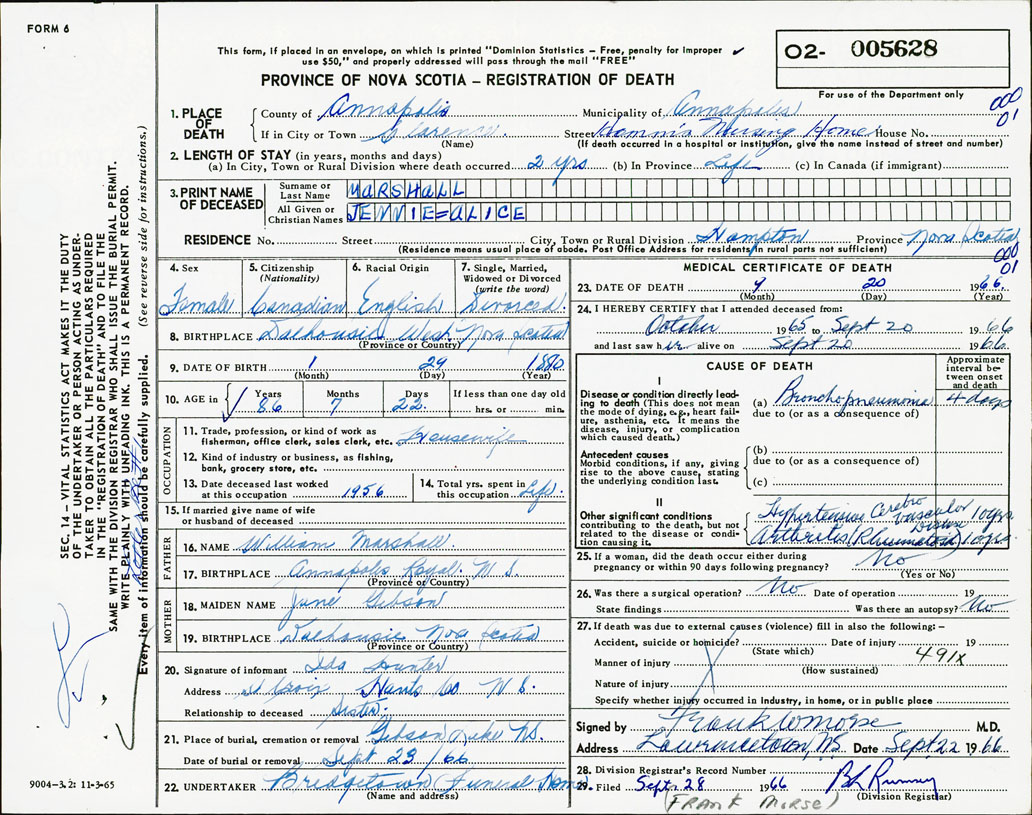 FORM 6
This form, if placed in an envelope, on which is printed "Dominion Statistics – Free, penalty for improper
use $50," and properly addressed will pass through the mail "FREE"
O2- 005628
PROVINCE OF NOVA SCOTIA – REGISTRATION OF DEATH
For use of the Department only
000
01
1. PLACE OF DEATH
County of Annapolis Municipality of Annapolis
If in City or Town Clarence. Street Nursing Home House No.
(Name) (If death occurred in a hospital or institution, give the name instead of street and number)
2. LENGTH OF STAY (in years, months and days)
(a) In City, Town or Rural Division where death occurred 2 yrs (b) In Province Life (c) In Canada (if immigrant)
3. PRINT NAME OF DECEASED
Surname or Last Name MARSHALL
All Given or Christian Names JENNIE=ALICE
RESIDENCE No. Street City, Town or Rural Division Hampton Province Nova Scotia
(Residence means usual place of abode. Post Office Address for residents in rural parts not sufficient)
000
01
4. Sex
Female
5. Citizenship
(Nationality)
Canadian
6. Racial Origin
English
7. Single, Married,
Widowed or Divorced
(write the word)
Divorced
8. BIRTHPLACE Dalhousie West Nova Scotia
(Province or Country)
9. DATE OF BIRTH 1 29 1880
(Month) (Day) (Year)
10. AGE in Years Months Days If less than one day old
86 7 22 hrs. or min.
OCCUPATION
11. Trade, profession, or kind of work as
fisherman, office clerk, sales clerk, etc. Housewife
12. Kind of industry or business, as fishing,
bank, grocery store, etc.
13. Date deceased last worked
at this occupation 1956
14. Total yrs. spent in
this occupation Life.
15. If married give name of wife
or husband of deceased
FATHER
16. NAME William Marshall.
17. BIRTHPLACE Annapolis Royal N S
(Province or Country)
MOTHER
18. MAIDEN NAME June Gibson
19. BIRTHPLACE Dalhousie Nova Scotia
(Province or Country)
20. Signature of informant Ida Hunter
Address St Croix Hants Co N S.
Relationship to deceased Sister.
21. Place of burial, cremation or removal Gibson Lake NS.
Date of burial or removal Sept 23 / 66
22. UNDERTAKER Bridgetown Funeral Home
(Name and address)
MEDICAL CERTIFICATE OF DEATH
23. DATE OF DEATH 9 20 1966.
(Month) (Day) (Year)
24. I HEREBY CERTIFY that I attended deceased from:
October 1965 to Sept 20 1966
and last saw her alive on Sept 20 1966.
CAUSE OF DEATH
Approximate
interval be-
tween onset
and death
I
Disease or condition directly lead-
ing to death (This does not mean
the mode of dying, e.g., heart fail-
ure, asthenia, etc. It means the
disease, injury, or complication
which caused death.)
(a) Bronchopneumonia 4 days
due to (or as a consequence of)
Antecedent causes
Morbid conditions, if any, giving
rise to the above cause, stating
the underlying condition last.
(b)
due to (or as a consequence of)
(c)
II
Other significant conditions
contributing to the death, but not
related to the disease or condi-
tion causing it.
Hypertensive Cerebro Vascular Disease 10 yrs
Arthritis (Rheumatoid) 10 yrs.
25. If a woman, did the death occur either during
pregnancy or within 90 days following pregnancy? No
(Yes or No)
26. Was there a surgical operation? No Date of operation 19
State findings Was there an autopsy? No
27. If death was due to external causes (violence) fill in also the following: –
Accident, suicide or homicide? Date of injury 19
(State which)
Manner of injury 491X
(How sustained)
Nature of injury
Specify whether injury occurred in Industry, in home, or in public place
Signed by Frank W Morse M.D.
Address Lawrencetown, NS Date Sept 22 1966
28. Division Registrar's Record Number
29. Filed Sept 28 1966
(Division Registrar)
(FRANK MORSE)
SEC. 14 – VITAL STATISTICS ACT MAKES IT THE DUTY
OF THE UNDERTAKER OR PERSON ACTING AS UNDER-
TAKER TO OBTAIN ALL THE PARTICULARS REQUIRED
IN THE "REGISTRATION OF DEATH" AND TO FILE THE
SAME WITH THE DIVISION REGISTRAR WHO SHALL ISSUE THE BURIAL PERMIT.
WRITE PLAINLY WITH UNFADING INK. THIS IS A PERMANENT RECORD.
Every item of information should be carefully supplied. (See reverse side for instructions.)
9004-3.2: 11-3-65